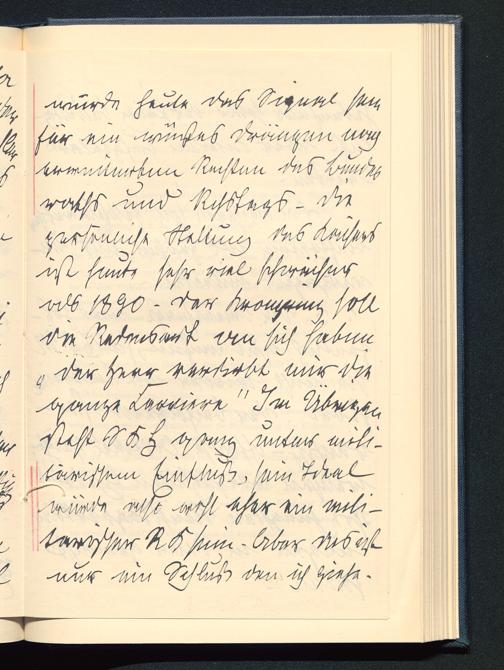 würde heute das Signal sein
für ein wüstes Drängen nach
erweiterten Rechten des Bundes
raths und Rchstags – die
persönliche Stellung des Kaisers
ist heute sehr viel schwächer
als 1890 – der Kronprinz soll
die Redensart an sich haben
„der Herr verdirbt mir die
ganze Carriere" Im Übrigen
steht SKH ganz unter mili-
tärischem Einfluß, sein Ideal
würde also wohl eher ein mili-
tärischer RK sein. Aber das ist
nur ein Schluß den ich ziehe.